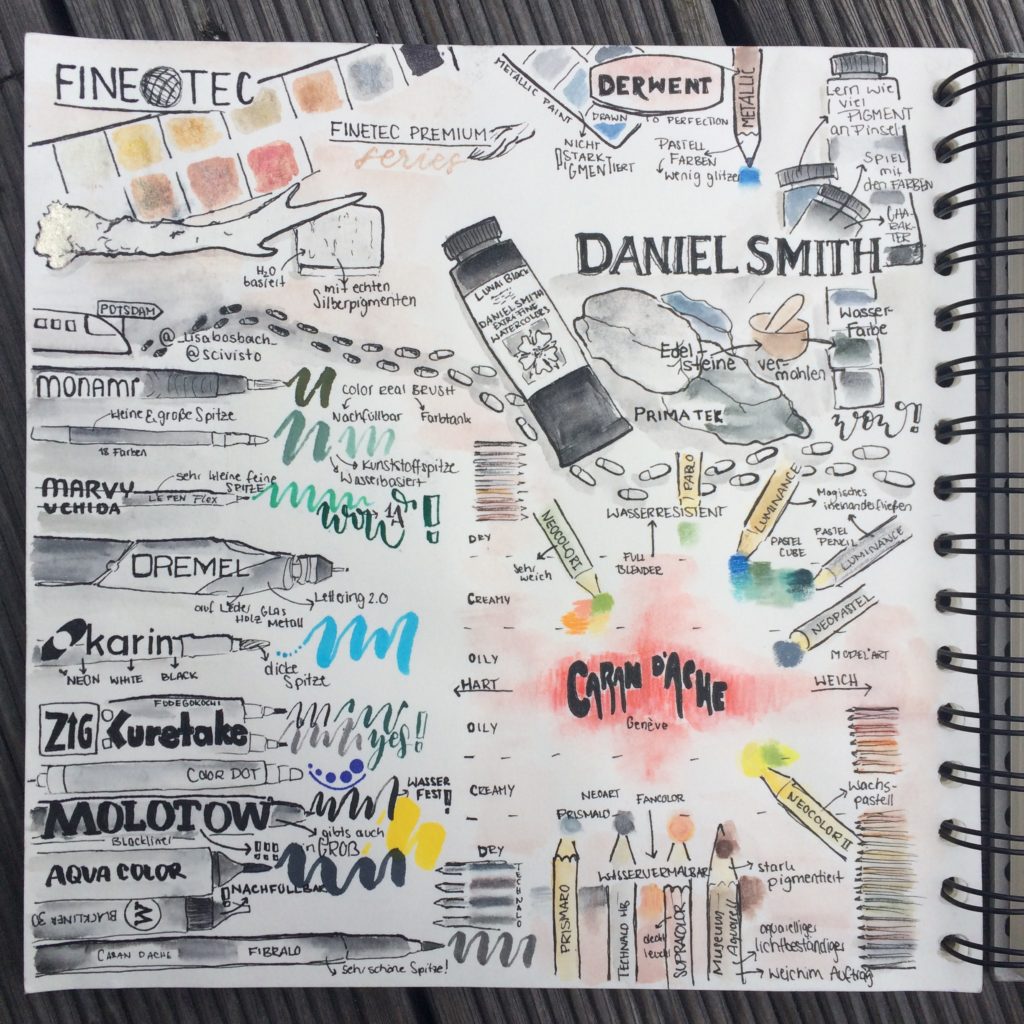 FINETEC
FINETEC PREMIUM
series
H2O
basiert
mit echten
Silberpigmenten
METALLIC PAINT
DERWENT
DRAWN TO PERFECTION
METALLIC
NICHT
STARK
PIGMENTIERT
PASTELL
FARBEN
wenig glitzer
Lern wie
viel
PIGMENT
an Pinsel
SPIEL
mit
den FARBEN
CHA-
RAK-
TER
DANIEL SMITH
Lunar Black
DANIEL SMITH
EXTRA FINE
WATERCOLORS
Edelsteine vermahlen
PRIMATEK
Wasser-
Farbe
wow!
POTSDAM
@_lisabosbach_
@scivisto
MONAMI
COLOR REAL BRUSH
Nachfüllbar
Farbtank
kleine & große Spitze
18 Farben
Kunststoffspitze
Wasserbasiert
MARVY
UCHIDA
sehr kleine feine
SPITZE
LE PEN Flex
wow!
DREMEL
auf Leder
HOLZ
GLAS
Metall
Lettering 2.0
karin
NEON WHITE BLACK
dicke
Spitze
ZIG Kuretake
FUDEGOKOCHI
yes!
COLOR DOT
WASSER
FEST!
MOLOTOW
Blackliner
gibts auch
in GROß
AQUA COLOR
NACHFÜLLBAR
BLACKLINER
CARAN D'ACHE FIBRALO
sehr schöne Spitze!
DRY
CREAMY
OILY
HART
OILY
CREAMY
DRY
TECHNALO
NEOCOLOR I
Sehr
weich
WASSERRESISTENT
FULL
BLENDER
PABLO
LUMINANCE
Magisches
ineinanderfließen
PASTEL
CUBE
PASTEL
PENCIL
LUMINANCE
NEOPASTEL
MODEL'ART
CARAN D'ACHE
Genève
WEICH
NEOCOLOR II
Wachs-
pastell
NEOART
FANCOLOR
PRISMALO
WASSERVERMALBAR
PRISMARO
TECHNALO HB
SUPRACOLOR
Museum
Aquarell
stark
pigmentiert
lichtbeständiger
weich im Auftrag